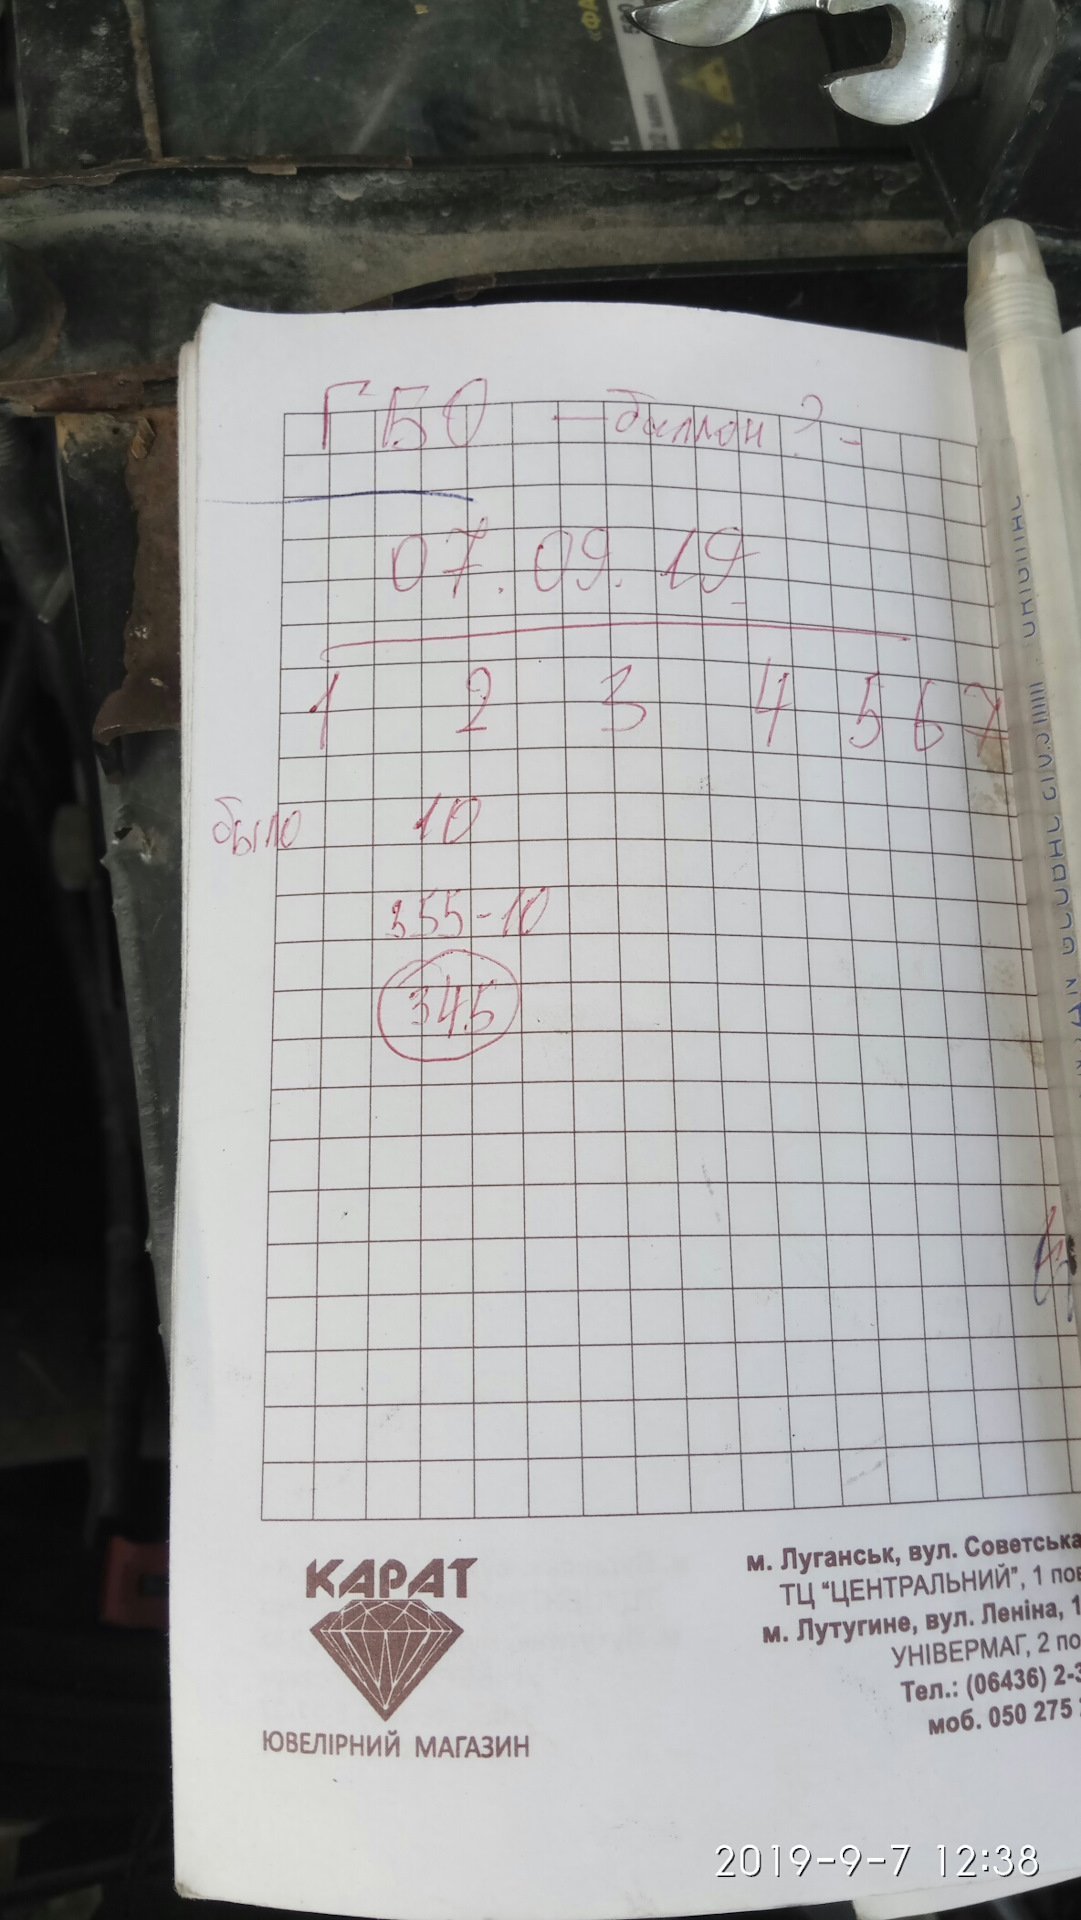 ГБО — баллон ?
07.09.19
1 2 3 4 5 6 7
было 10
355-10
345
КАРАТ
ЮВЕЛІРНИЙ МАГАЗИН
м. Луганськ, вул. Советська
ТЦ "ЦЕНТРАЛЬНИЙ", 1 пов
м. Лутугине, вул. Леніна, 1
УНІВЕРМАГ, 2 по
Тел.: (06436) 2-3
моб. 050 275
2019-9-7 12:38